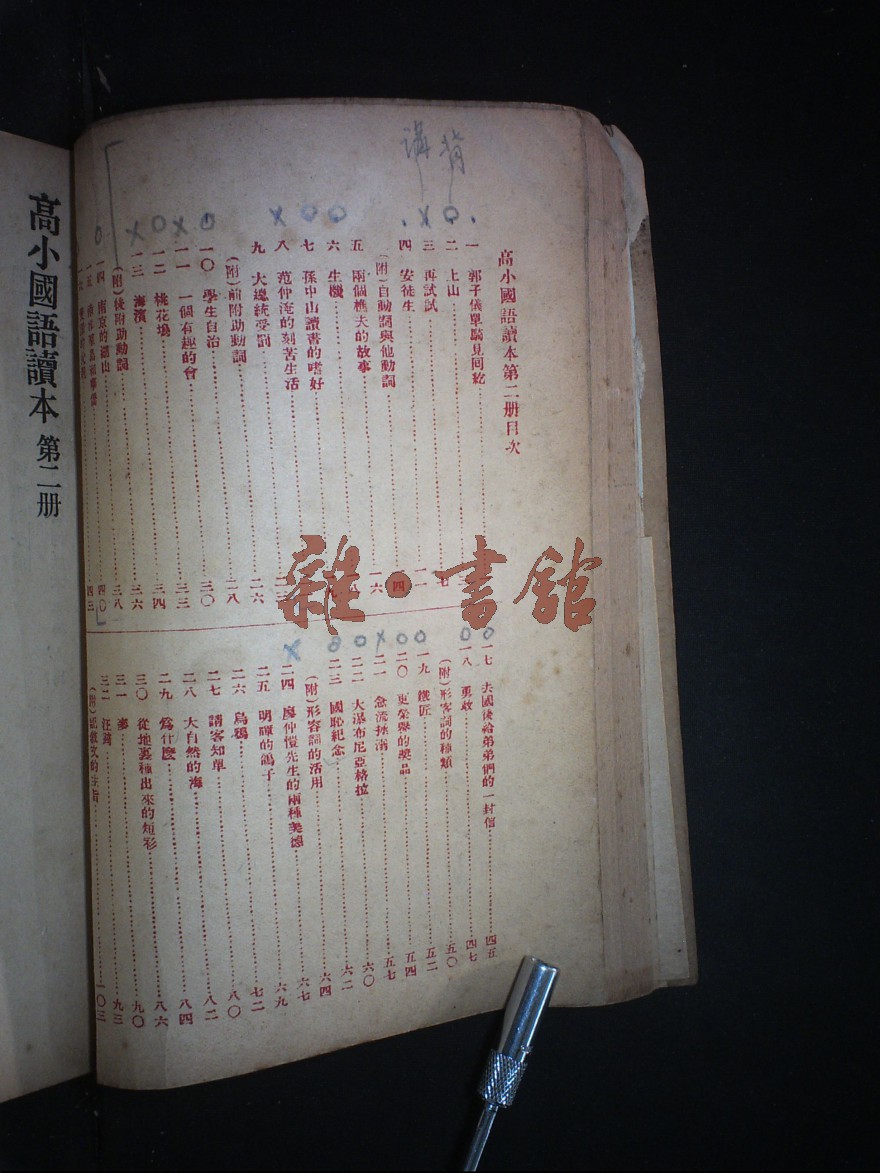 講 背
高小國語讀本第二册目次
一 郭子儀單騎見回紇
二 上山 七
三 再試試 一一
四 安徒生 一四
(附)自動詞與他動詞 一六
五 兩個樵夫的故事
六 生機
七 孫中山讀書的嗜好
八 范仲淹的刻苦生活
九 大總統受罰 二六
(附)前附助動詞 二八
一〇 學生自治 三〇
一一 一個有趣的會 三三
一二 桃花塢 三四
一三 海濱 三六
(附)後附助動詞 三八
一四 南京的湖山 四〇
一五 四三
一六
一七 去國後給弟弟們的一封信 四五
一八 勇敢 四七
(附)形容詞的種類 五〇
一九 鐵匠 五二
二〇 更榮譽的獎品 五四
二一 急流拯溺 五七
二二 大瀑布尼亞格拉 六〇
二三 國恥紀念 六二
(附)形容詞的活用 六四
二四 廖仲愷先生的兩種美德 六七
二五 明暉的鴿子 六九
二六 烏鴉 七二
二七 請客知單 八〇
二八 大自然的海 八二
二九 爲什麽 八四
三〇 從地裏種出來的短衫 八六
三一 麥 九〇
三二 汪踦 九三
(附)記敘文的主眼 一〇三
高小國語讀本 第二册
雜·書館